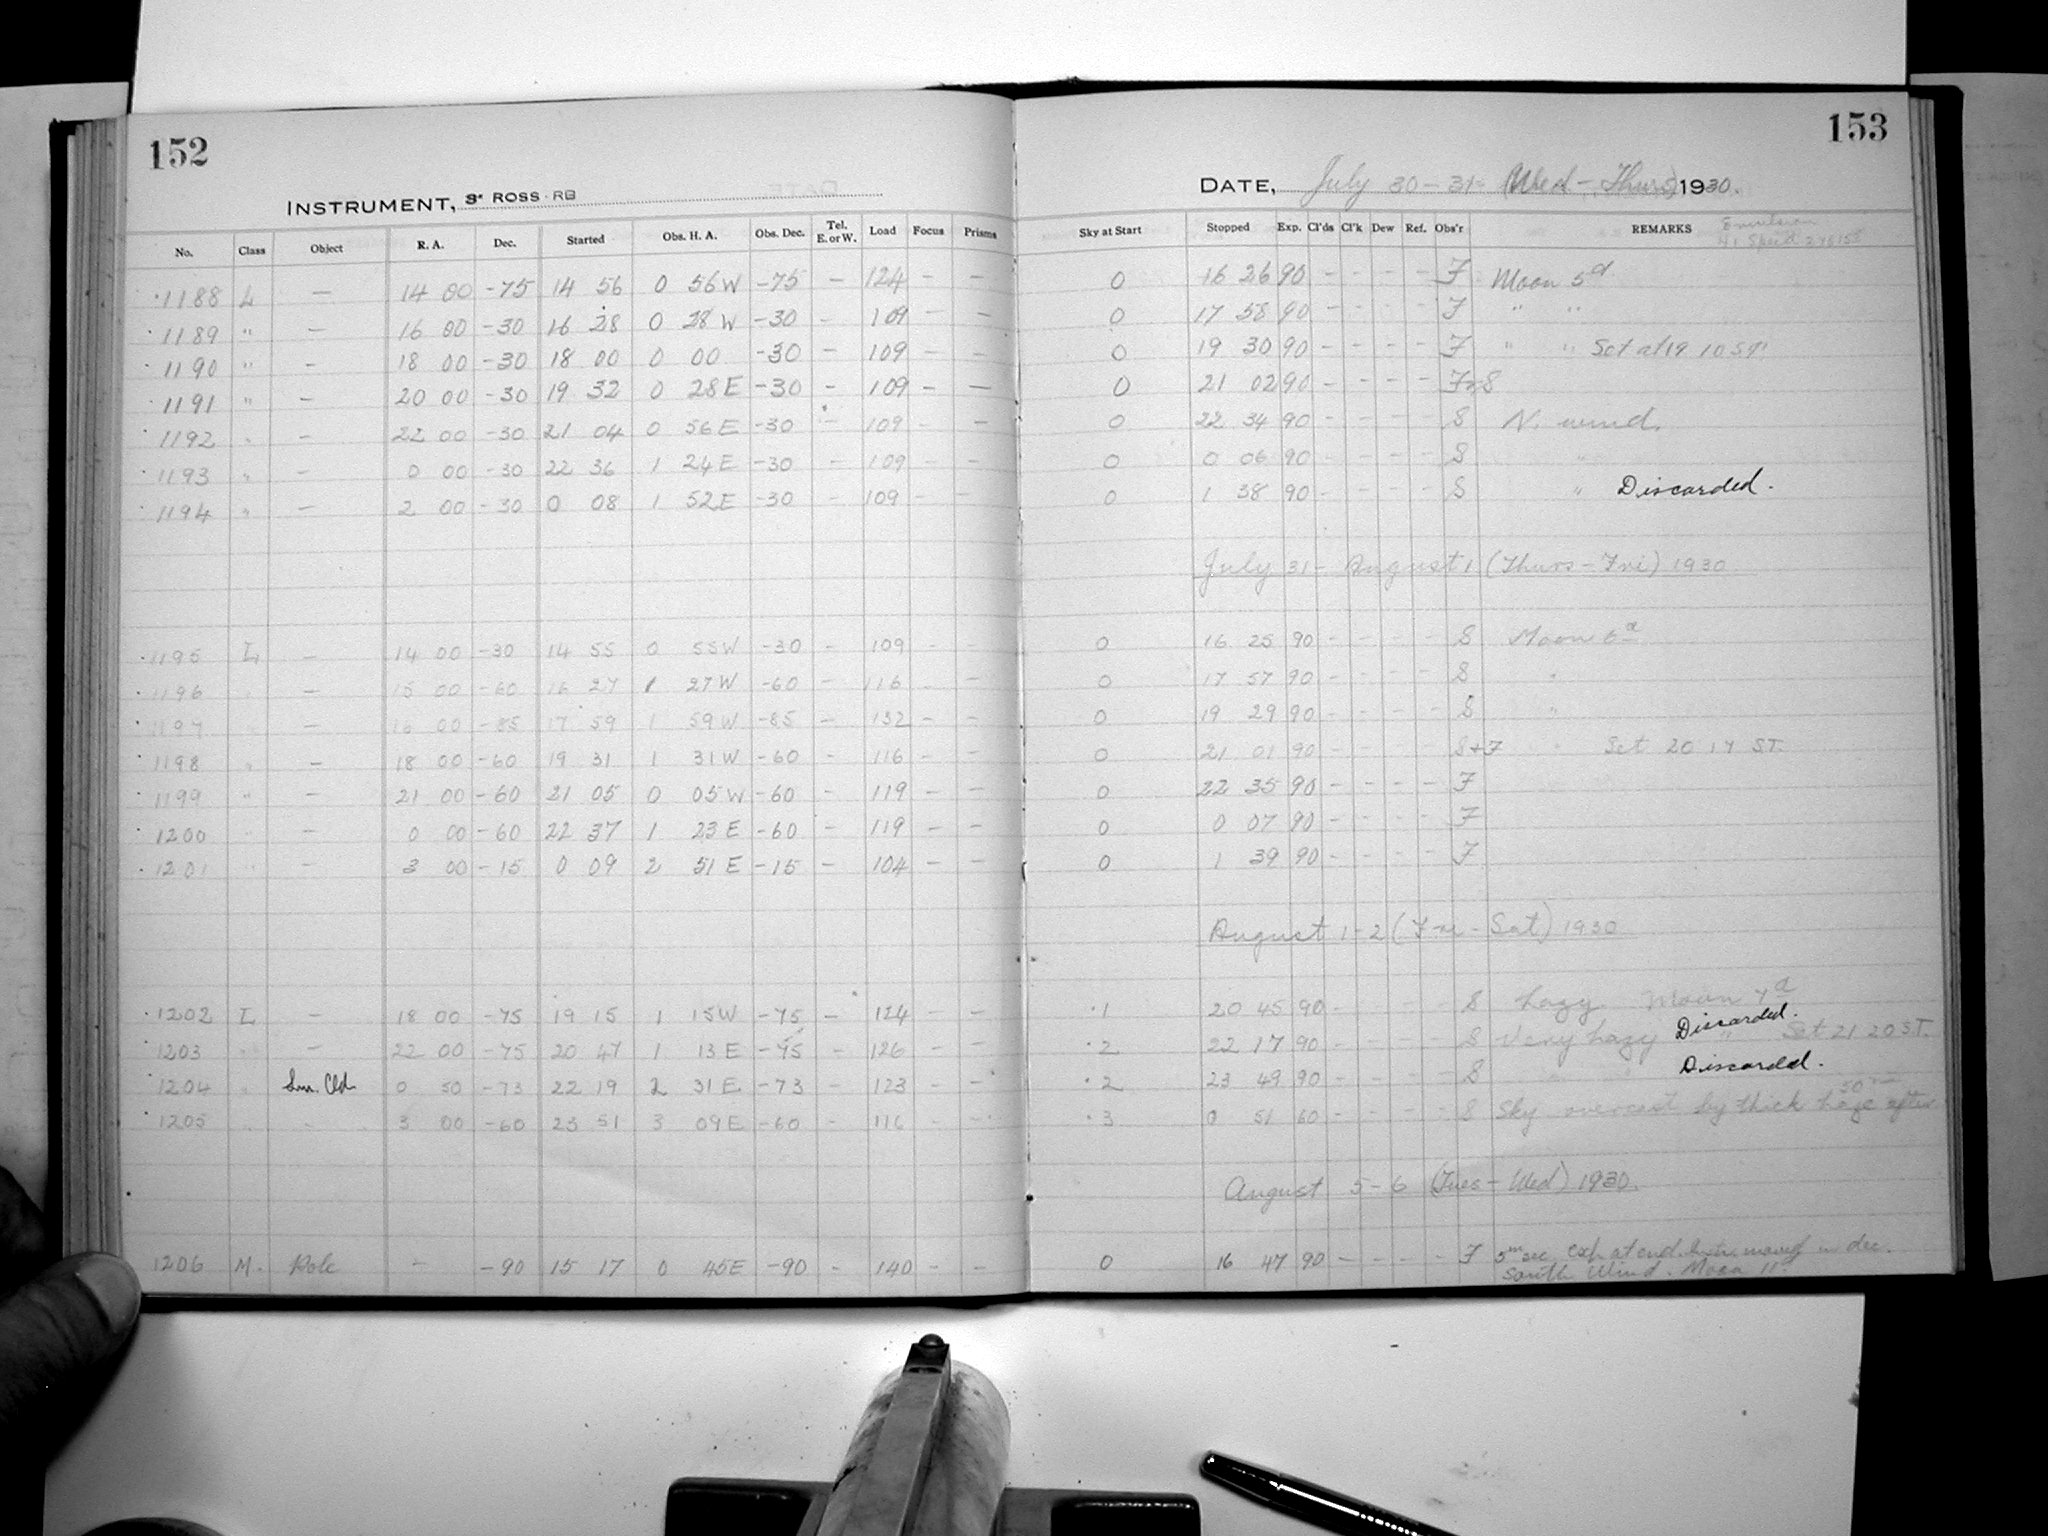 152
153
INSTRUMENT, 3" ROSS - RB
DATE, July 30 - 31 (Wed - Thurs) 1930.
No. Class Object R. A. Dec. Started Obs. H. A. Obs. Dec. Tel. E. or W. Load Focus Prisms Sky at Start Stopped Exp. Cl'ds Cl'k Dew Ref. Obs'r REMARKS
1188 L — 14 00 -75 14 56 0 56 W -75 — 124 — — 0 16 26 90 - - - - F Moon 5d
1189 " — 16 00 -30 16 28 0 28 W -30 — 109 — — 0 17 58 90 - - - - F " "
1190 " — 18 00 -30 18 00 0 00 -30 — 109 — — 0 19 30 90 - - - - F " " Set at 19 10 S.T.
1191 " — 20 00 -30 19 32 0 28 E -30 — 109 — — 0 21 02 90 - - - - F+S
1192 " — 22 00 -30 21 04 0 56 E -30 — 109 — — 0 22 34 90 - - - - S N. wind.
1193 " — 0 00 -30 22 36 1 24 E -30 — 109 — — 0 0 06 90 - - - - S "
1194 " — 2 00 -30 0 08 1 52 E -30 — 109 — — 0 1 38 90 - - - - S " Discarded.
July 31 - August 1 (Thurs - Fri) 1930
1195 L — 14 00 -30 14 55 0 55 W -30 — 109 — — 0 16 25 90 - - - - S Moon 6d
1196 " — 15 00 -60 16 27 1 27 W -60 — 116 — — 0 17 57 90 - - - - S "
1197 " — 16 00 -85 17 59 1 59 W -85 — 132 — — 0 19 29 90 - - - - S "
1198 " — 18 00 -60 19 31 1 31 W -60 — 116 — — 0 21 01 90 - - - - S+F " Set 20 17 S.T.
1199 " — 21 00 -60 21 05 0 05 W -60 — 119 — — 0 22 35 90 - - - - F
1200 " — 0 00 -60 22 37 1 23 E -60 — 119 — — 0 0 07 90 - - - - F
1201 " — 3 00 -15 0 09 2 51 E -15 — 104 — — 0 1 39 90 - - - - F
August 1 - 2 (Fri - Sat) 1930
1202 L — 18 00 -75 19 15 1 15 W -75 — 124 — — 1 20 45 90 - - - - S hazy Moon 7d
1203 " — 22 00 -75 20 47 1 13 E -75 — 126 — — 2 22 17 90 - - - - S Very hazy Discarded. " Set 21 20 S.T.
1204 " Sm. Cld 0 50 -73 22 19 2 31 E -73 — 123 — — 2 23 49 90 - - - - S " " Discarded.
1205 " - 3 00 -60 23 51 3 09 E -60 — 116 — — 3 0 51 60 - - - - S Sky overcast by thick haze after 50m
August 5 - 6 (Tues - Wed) 1930.
1206 M. Pole — -90 15 17 0 45 E -90 — 140 — — 0 16 47 90 - - - - F 5 sec. exp. at end. moved in dec.
South Wind. Moon 11